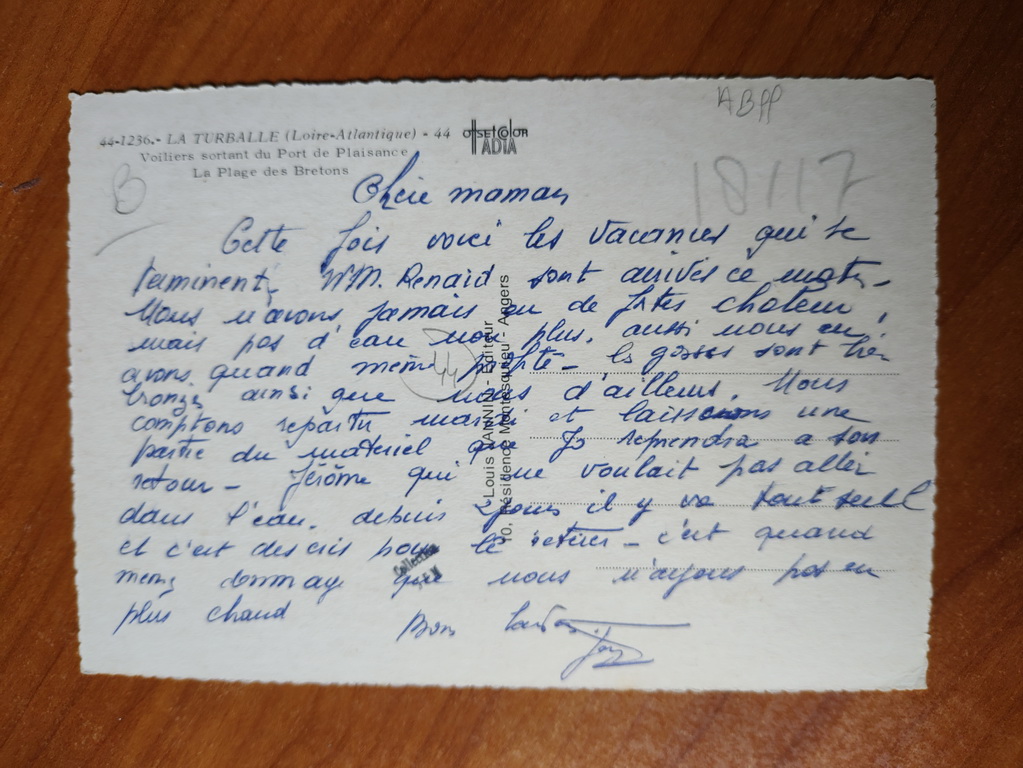 ABPP
44-1236.- LA TURBALLE (Loire-Atlantique) - 44
OFFSET COLOR
IADIA
Voiliers sortant du Port de Plaisance
La Plage des Bretons
B
18/17
Chère maman
Cette fois voici les vacances qui se
terminent, M M. Renard sont arrivés ce matin-
Nous n'avons jamais eu de fortes chaleurs,
mais pas d'eau non plus, aussi nous en
avons quand même profité - les gosses sont bien
bronzés ainsi que nous d'ailleurs. Nous
comptons repartir mardi et laisserons une
partie du matériel que Jo reprendra a son
retour - Jérôme qui ne voulait pas aller
dans l'eau, depuis 2 jours il y va tout seul
et c'est des cris pour le retirer - c'est quand
même dommage que nous n'ayons pas eu
plus chaud
Bons
44
Louis JANNIN - Editeur
10, Résidence Montesquieu - Angers
Collection